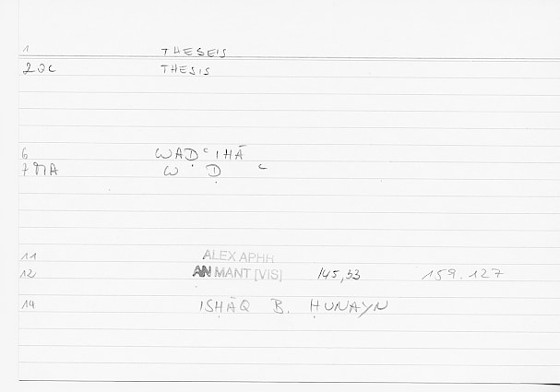 1 THESEIS
2 GC THESIS
6 WAḌʿIHĀ
7 MA W Ḍ ʿ
11 ALEX APHR
12 AN MANT [VIS] 145,33 159.127
14 ISḤĀQ B. ḤUNAYN